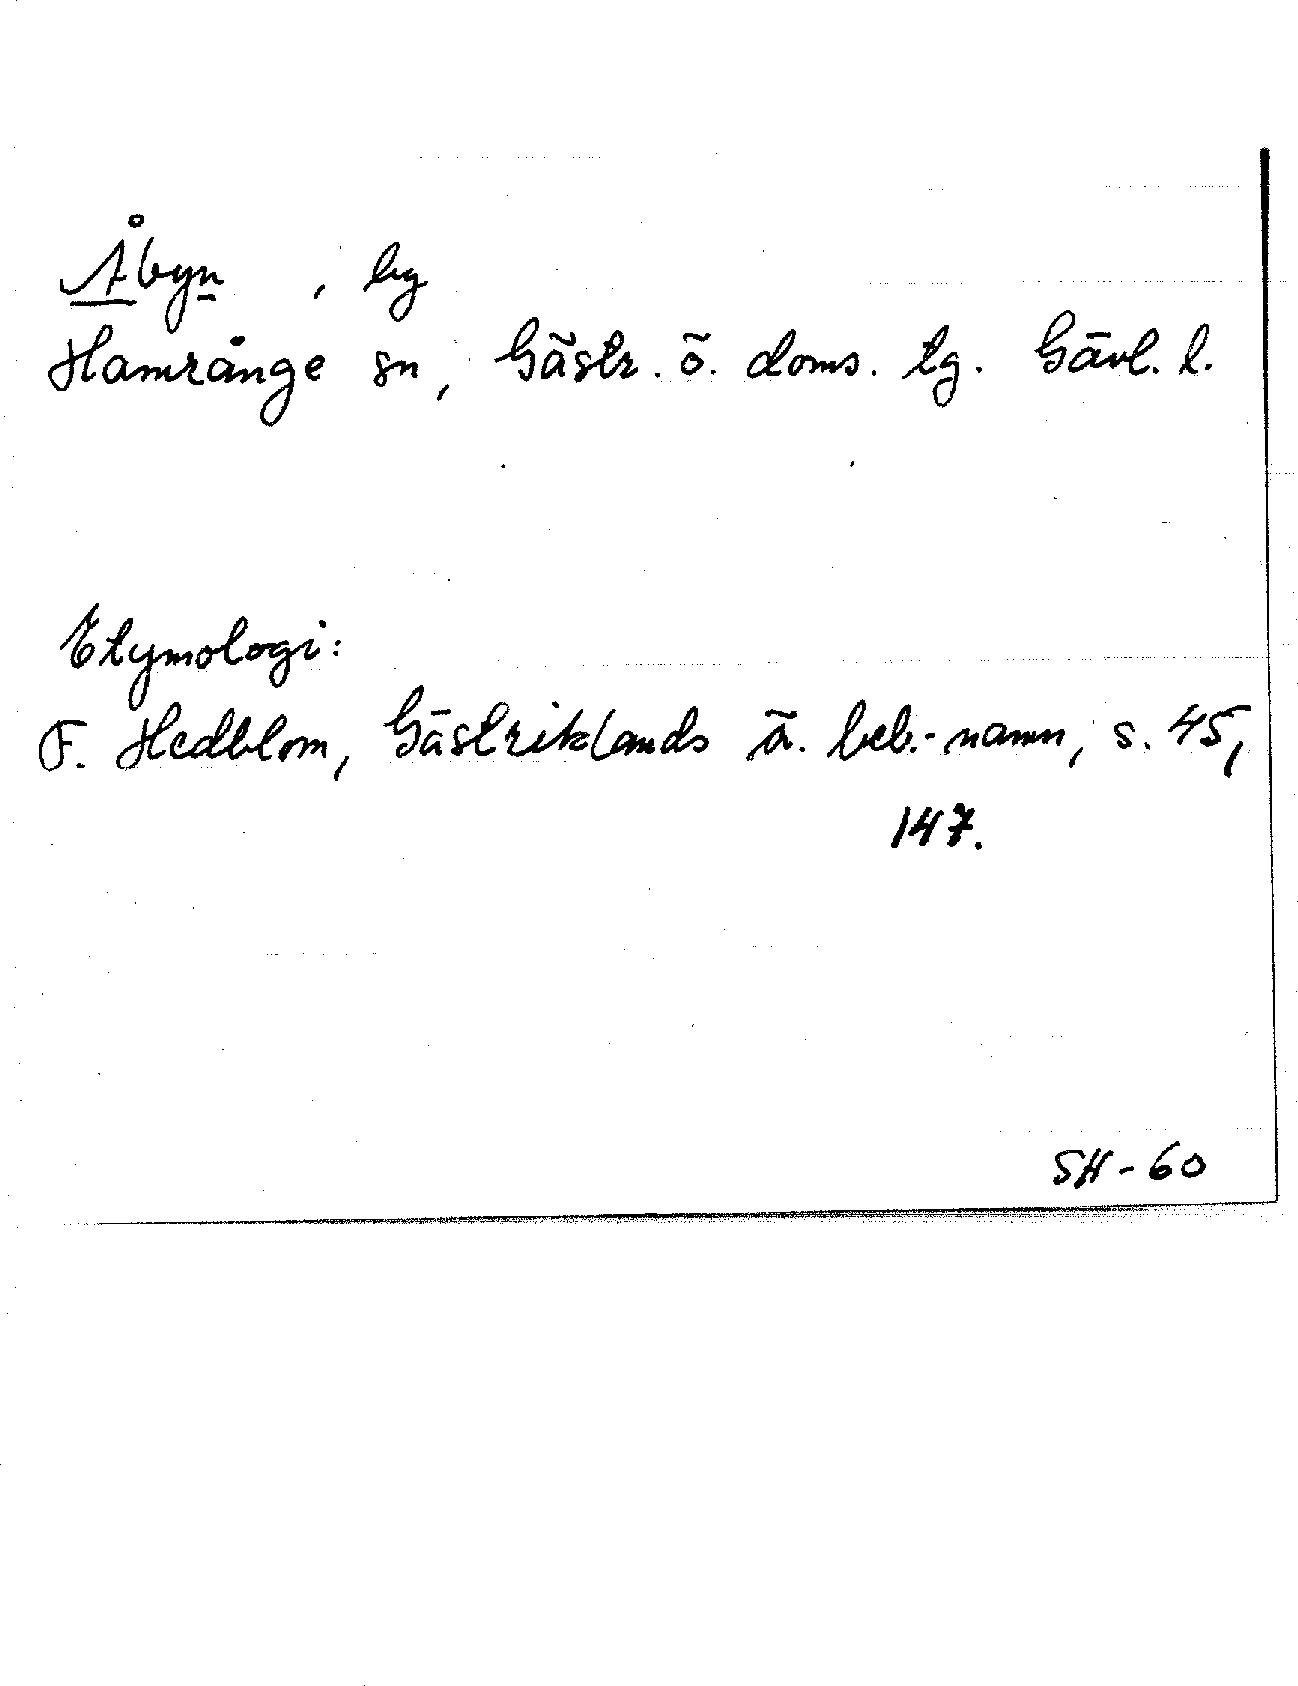 Åbyn , by
Hamrånge sn, Gästr. ö. doms. tg. Gävl. l.
Etymologi:
F. Hedblom, Gästriklands ä. beb.-namn, s. 45,
147.
SH-60